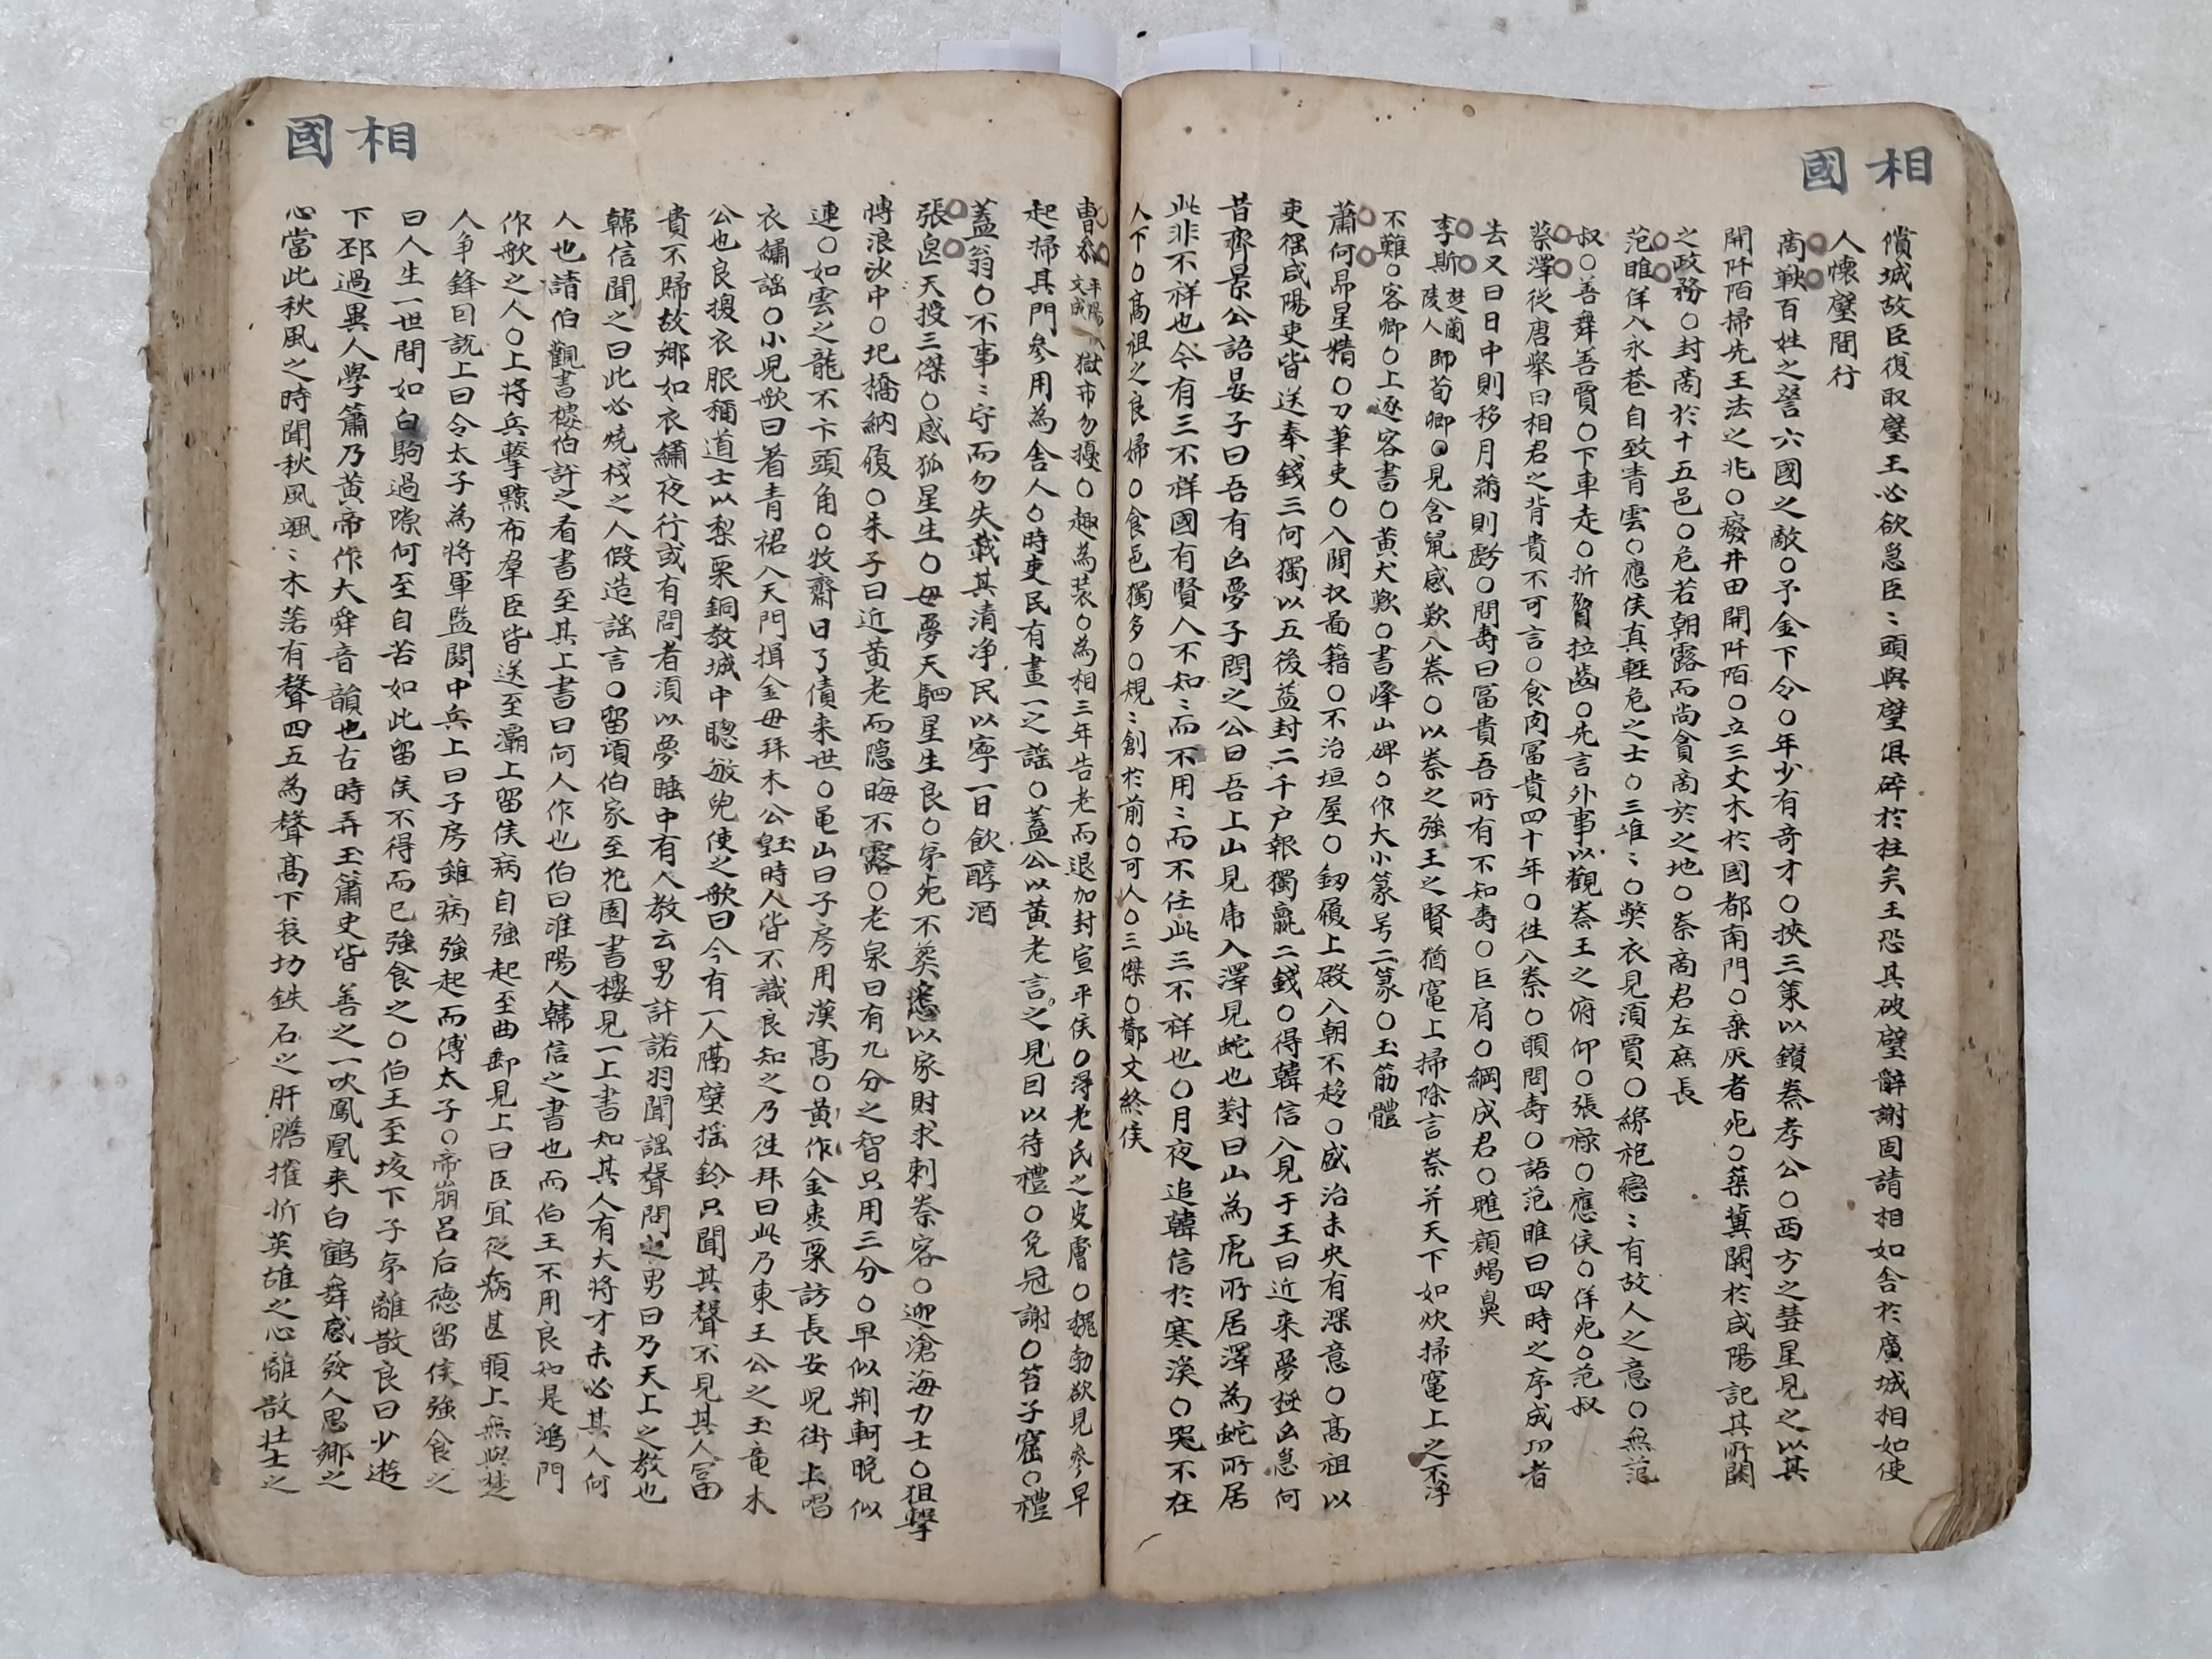 相國
償城故臣復取璧王必欲急臣〻頭與璧俱碎於柱矣王恐其破璧辭謝固請相如舍於廣城相如使
人懷璧間行
商鞅百姓之讐六國之敵○予金下令○年少有奇才○挾三策以鑽秦孝公○西方之彗星見之以其
開阡陌掃先王法之兆○癈井田開阡陌○立三丈木於國都南門○棄灰者死○築冀闕於咸陽記其所闕
之政務○封商於十五邑○危若朝露而尚貪商於之地○秦商君左庶長
范睢佯入永巷自致青雲○應侯真輕危之士○三准〻○弊衣見湏賈○綈袍戀〻有故人之意○無范
叔○善舞善賈○下車走○折脅拉齒○先言外事以觀秦王之俯仰○張祿○應侯○佯死○范叔
蔡澤從唐舉曰相君之背貴不可言○食肉冨貴四十年○徃入秦○頭問壽○語范睢曰四時之序成功者
去又曰日中則移月滿則虧○問壽曰冨貴吾所有不知壽○巨肩○綱成君○魋顔蝎鼻
李斯楚蘭陵人師荀卿○見含鼠感歎入秦○以秦之強王之賢猶竃上掃除言秦并天下如炊掃竃上之不淨
不難○客卿○上逐客書○黄犬歎○書嶧山碑○作大小篆号二篆○玉筋體
蕭何昴星精○刀筆吏○入関收啚籍○不治垣屋○釰履上殿入朝不趍○盛治未央有深意○高祖以
吏徭咸陽吏皆送奉錢三何獨以五後益封二千户報獨贏二錢○得韓信入見于王曰近来夢甚凶急何
昔齊景公語晏子曰吾有凶夢子問之公曰吾上山見虎入澤見蛇也對曰山為虎所居澤為蛇所居
此非不祥也今有三不祥國有賢人不知〻而不用〻而不任此三不祥也○月夜追韓信於寒溪○哭不在
人下○高祖之良婦○食邑獨多○規〻創於前○可人○三傑○酇文終侯
相國
曺叅平陽文成以獄市勿擾○趣為装○為相三年告老而退加封宣平侯○淂老氏之皮膚○魏勃欲見叅早
起掃其門叅用為舍人○時吏民有畫一之謡○蓋公以黄老言之見囙以待禮○免冠謝○笞子窋○禮
蓋翁○不事〻守而勿失載其清净民以寧一日飲醇酒
張良天授三傑○感狐星生○母夢天駟星生良○弟死不葬悉以家財求刺秦客○迎滄海力士○狙擊
愽浪沙中○圯橋納履○朱子曰近黄老而隐晦不露○老泉曰有九分之智只用三分○早似荆軻晚似
連○如雲之龍不卞頭角○牧齋曰了債来世○亀山曰子房用漢高○黄作金棗栗訪長安児街上唱
衣繡謡○小児歌曰着青裙入天門揖金母拜木公皇時人皆不識良知之乃徃拜曰此乃東王公之玉童木
公也良搜衣服稱道士以梨栗銅敎城中聦敏児使之歌曰今有一人隔壁摇鈴只聞其聲不見其人冨
貴不歸故鄉如衣繡夜行或有問者湏以夢睡中有人教云男許諾羽聞謡聲問之男曰乃天上之教也
韓信聞之曰此必燒棧之人假造謡言○留項伯家至花園書樓見一上書知其人有大將才未必其人何
人也請伯觀書樓伯許之看書至其上書曰何人作也伯曰淮陽人韓信之書也而伯王不用良知是鴻門
作歌之人○上將兵擊黥布羣臣皆送至灞上留侯病自強起至曲郵見上曰臣冝從病甚頭上無與楚
人争鋒囙説上曰令太子為將軍監関中兵上曰子房雖病強起而傅太子○帝崩呂后德留侯強食之
曰人生一世間如白駒過隙何至自苦如此留侯不得而已強食之○伯王至垓下子弟離散良曰少遊
下邳過異人學簫乃黄帝作大舜音韻也古時弄玉簫史皆善之一吹鳳凰来白鶴舞感發人思鄉之
心當此秋風之時聞秋風颯〻木落有聲四五為聲高下哀切鉄石之肝膽摧折英雄之心離散壮士之